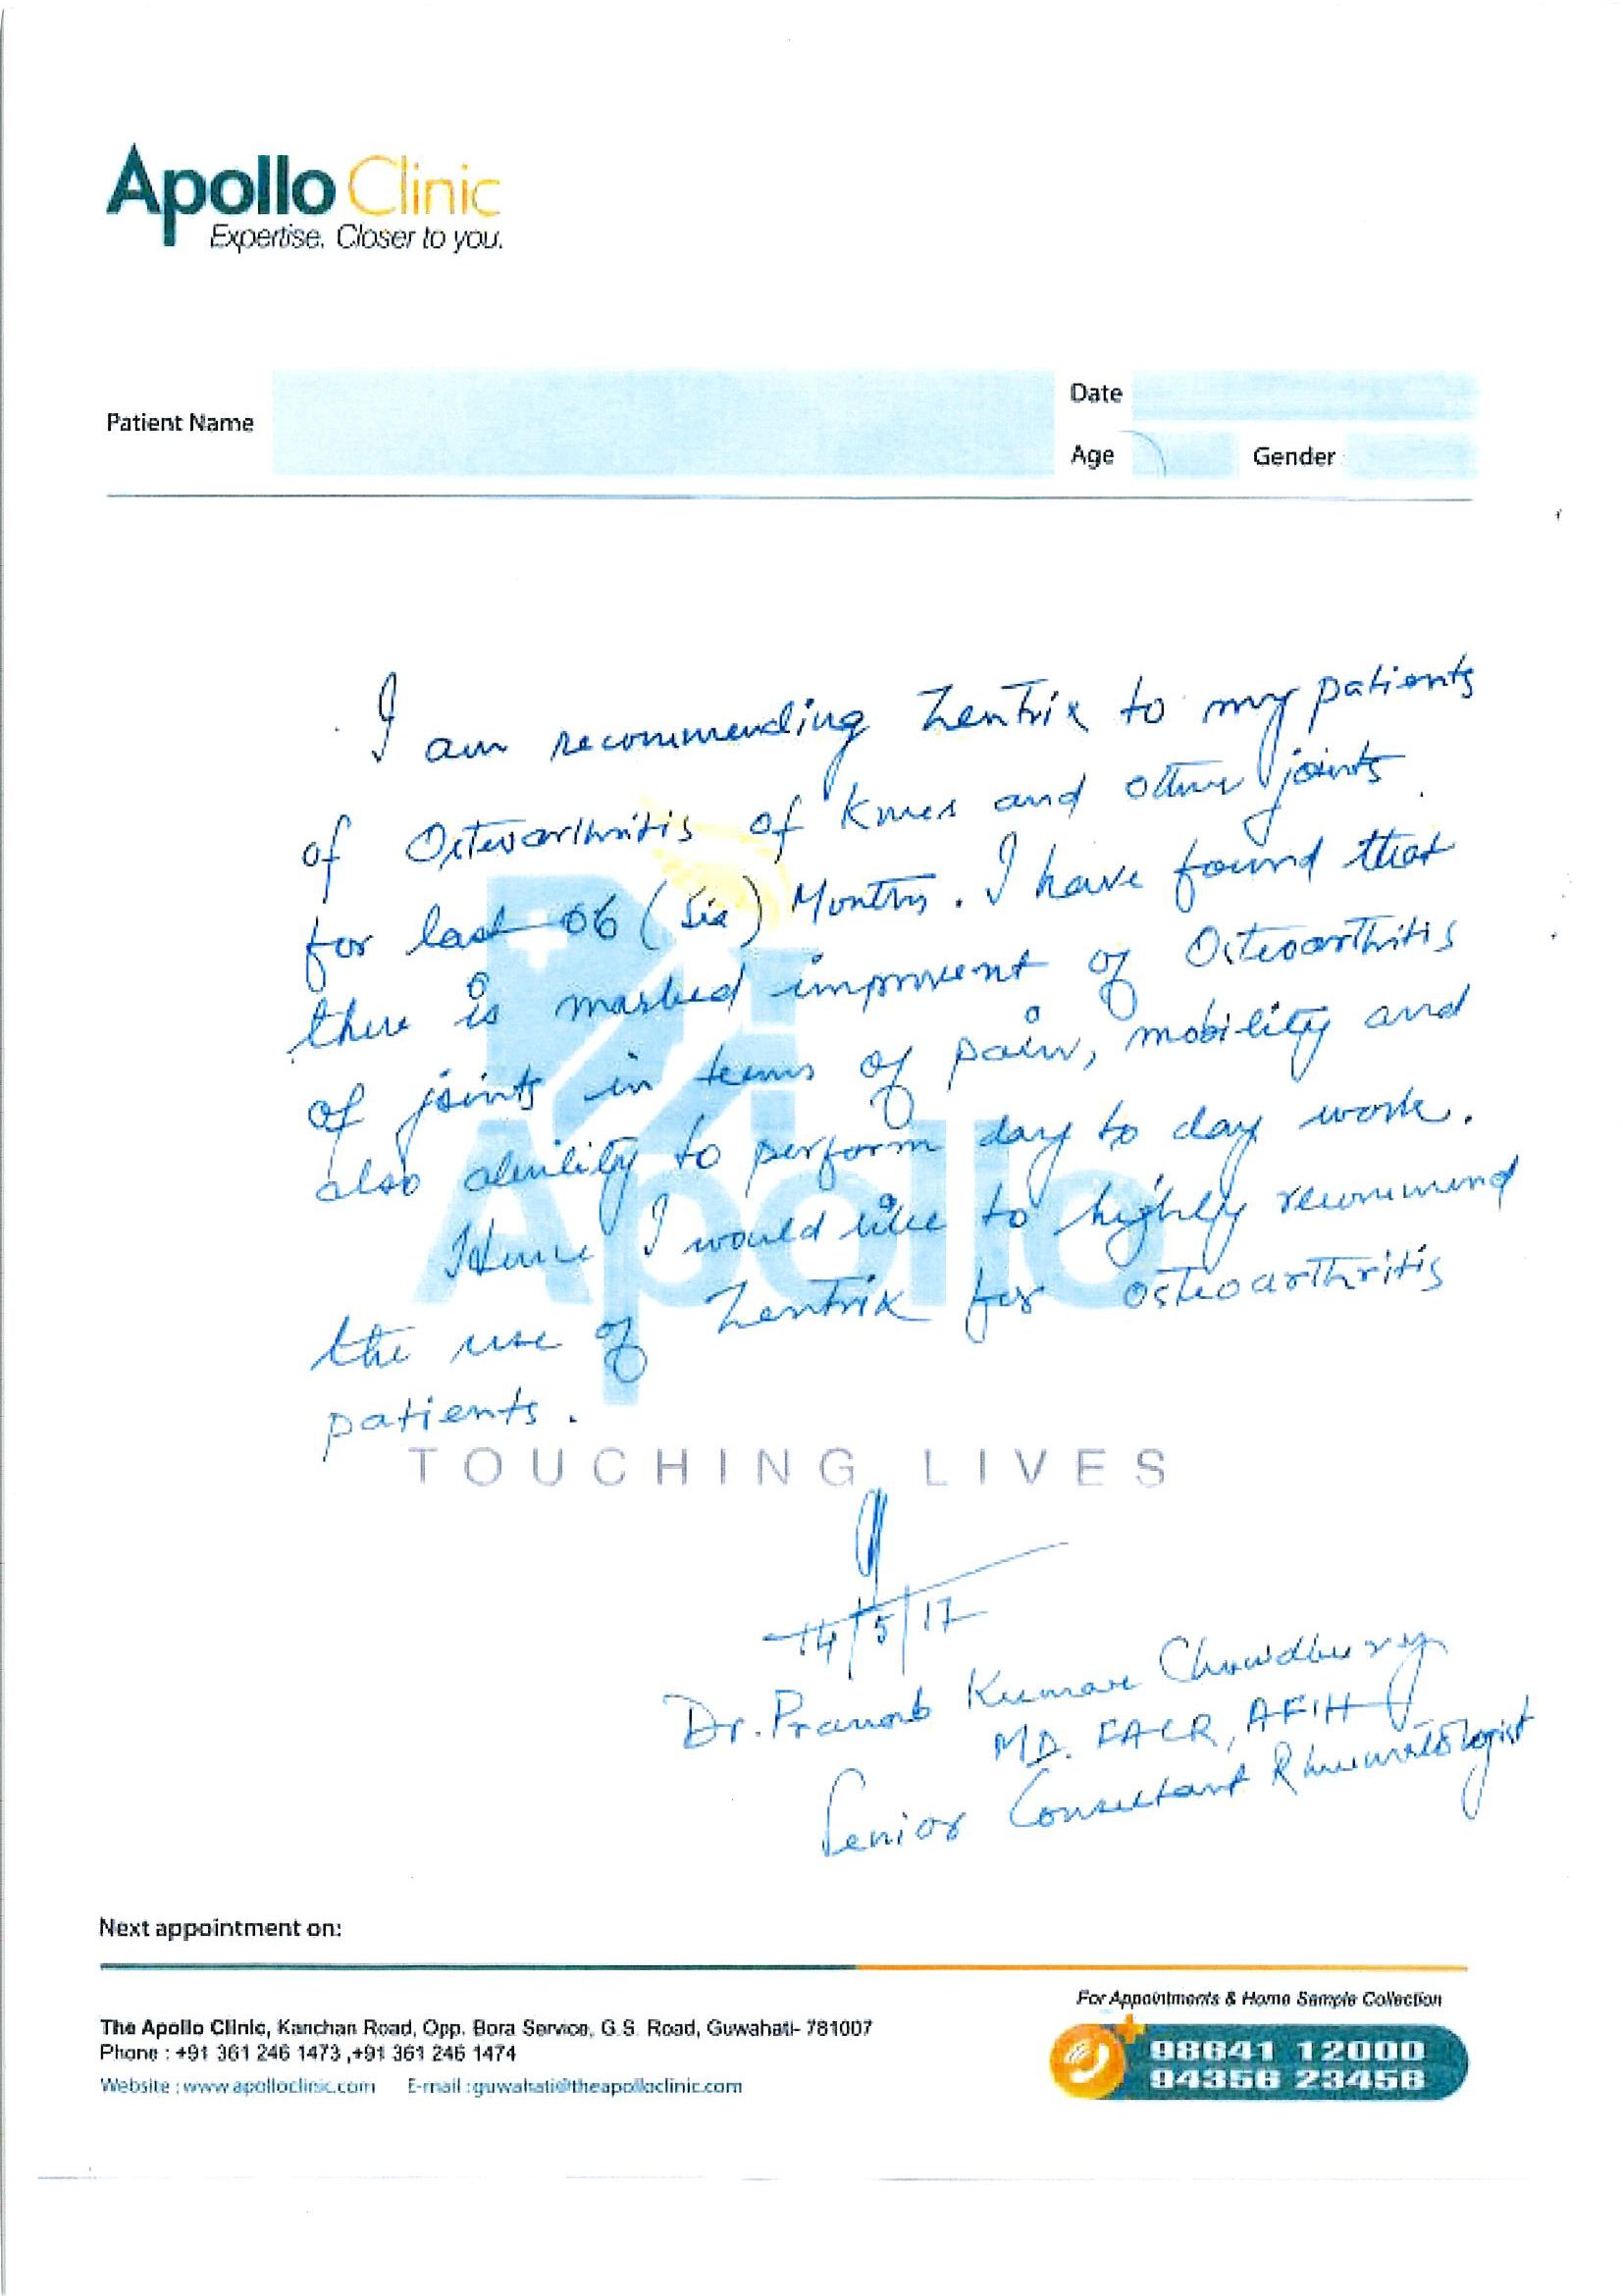 Apollo Clinic
Expertise. Closer to you.
Patient Name
Date
Age
Gender
I am recommending Zentrix to my patients
of Osteoarthritis of Knees and other joints
for last 06 (Six) Months. I have found that
there is marked improvent of Osteoarthritis
of joints in terms of pain, mobility and
also ability to perform day to day work.
Hence I would like to highly recommend
the use of Zentrix for osteoarthritis
patients.
Apollo
TOUCHING LIVES
14/5/17
Dr. Pranab Kumar Chowdhury
MD. FACR, AFIH
Senior Consultant Rheumatologist
Next appointment on:
For Appointments & Home Sample Collection
The Apollo Clinic, Kanchan Road, Opp. Bora Service, G.S. Road, Guwahati- 781007
Phone : +91 361 246 1473 ,+91 361 246 1474
Website : www.apolloclinic.com E-mail :guwahati@theapolloclinic.com
98641 12000
94356 23456